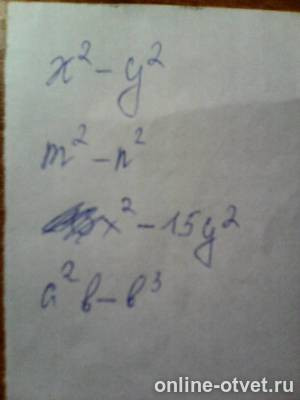 x² - y²
m² - n²
x² - 15y²
a²b - b³
online-otvet.ru